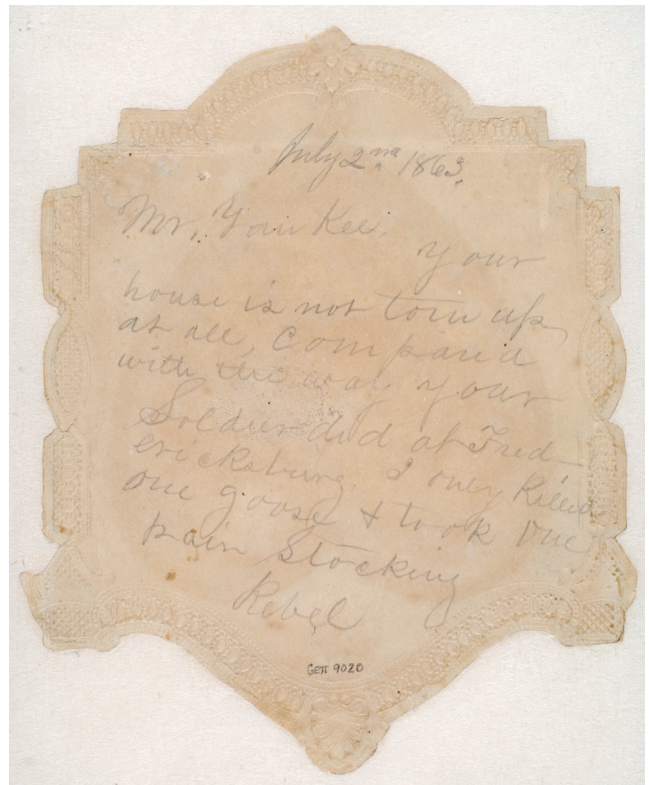 July 2nd 1863.
Mr. Yan Kee.
Your
house is not torn up
at all, Compared
with the way your
Soldier did at Fred-
ericksburg. I only Killed
one goose & took one
pair Stocking
Rebel
GETT 9020